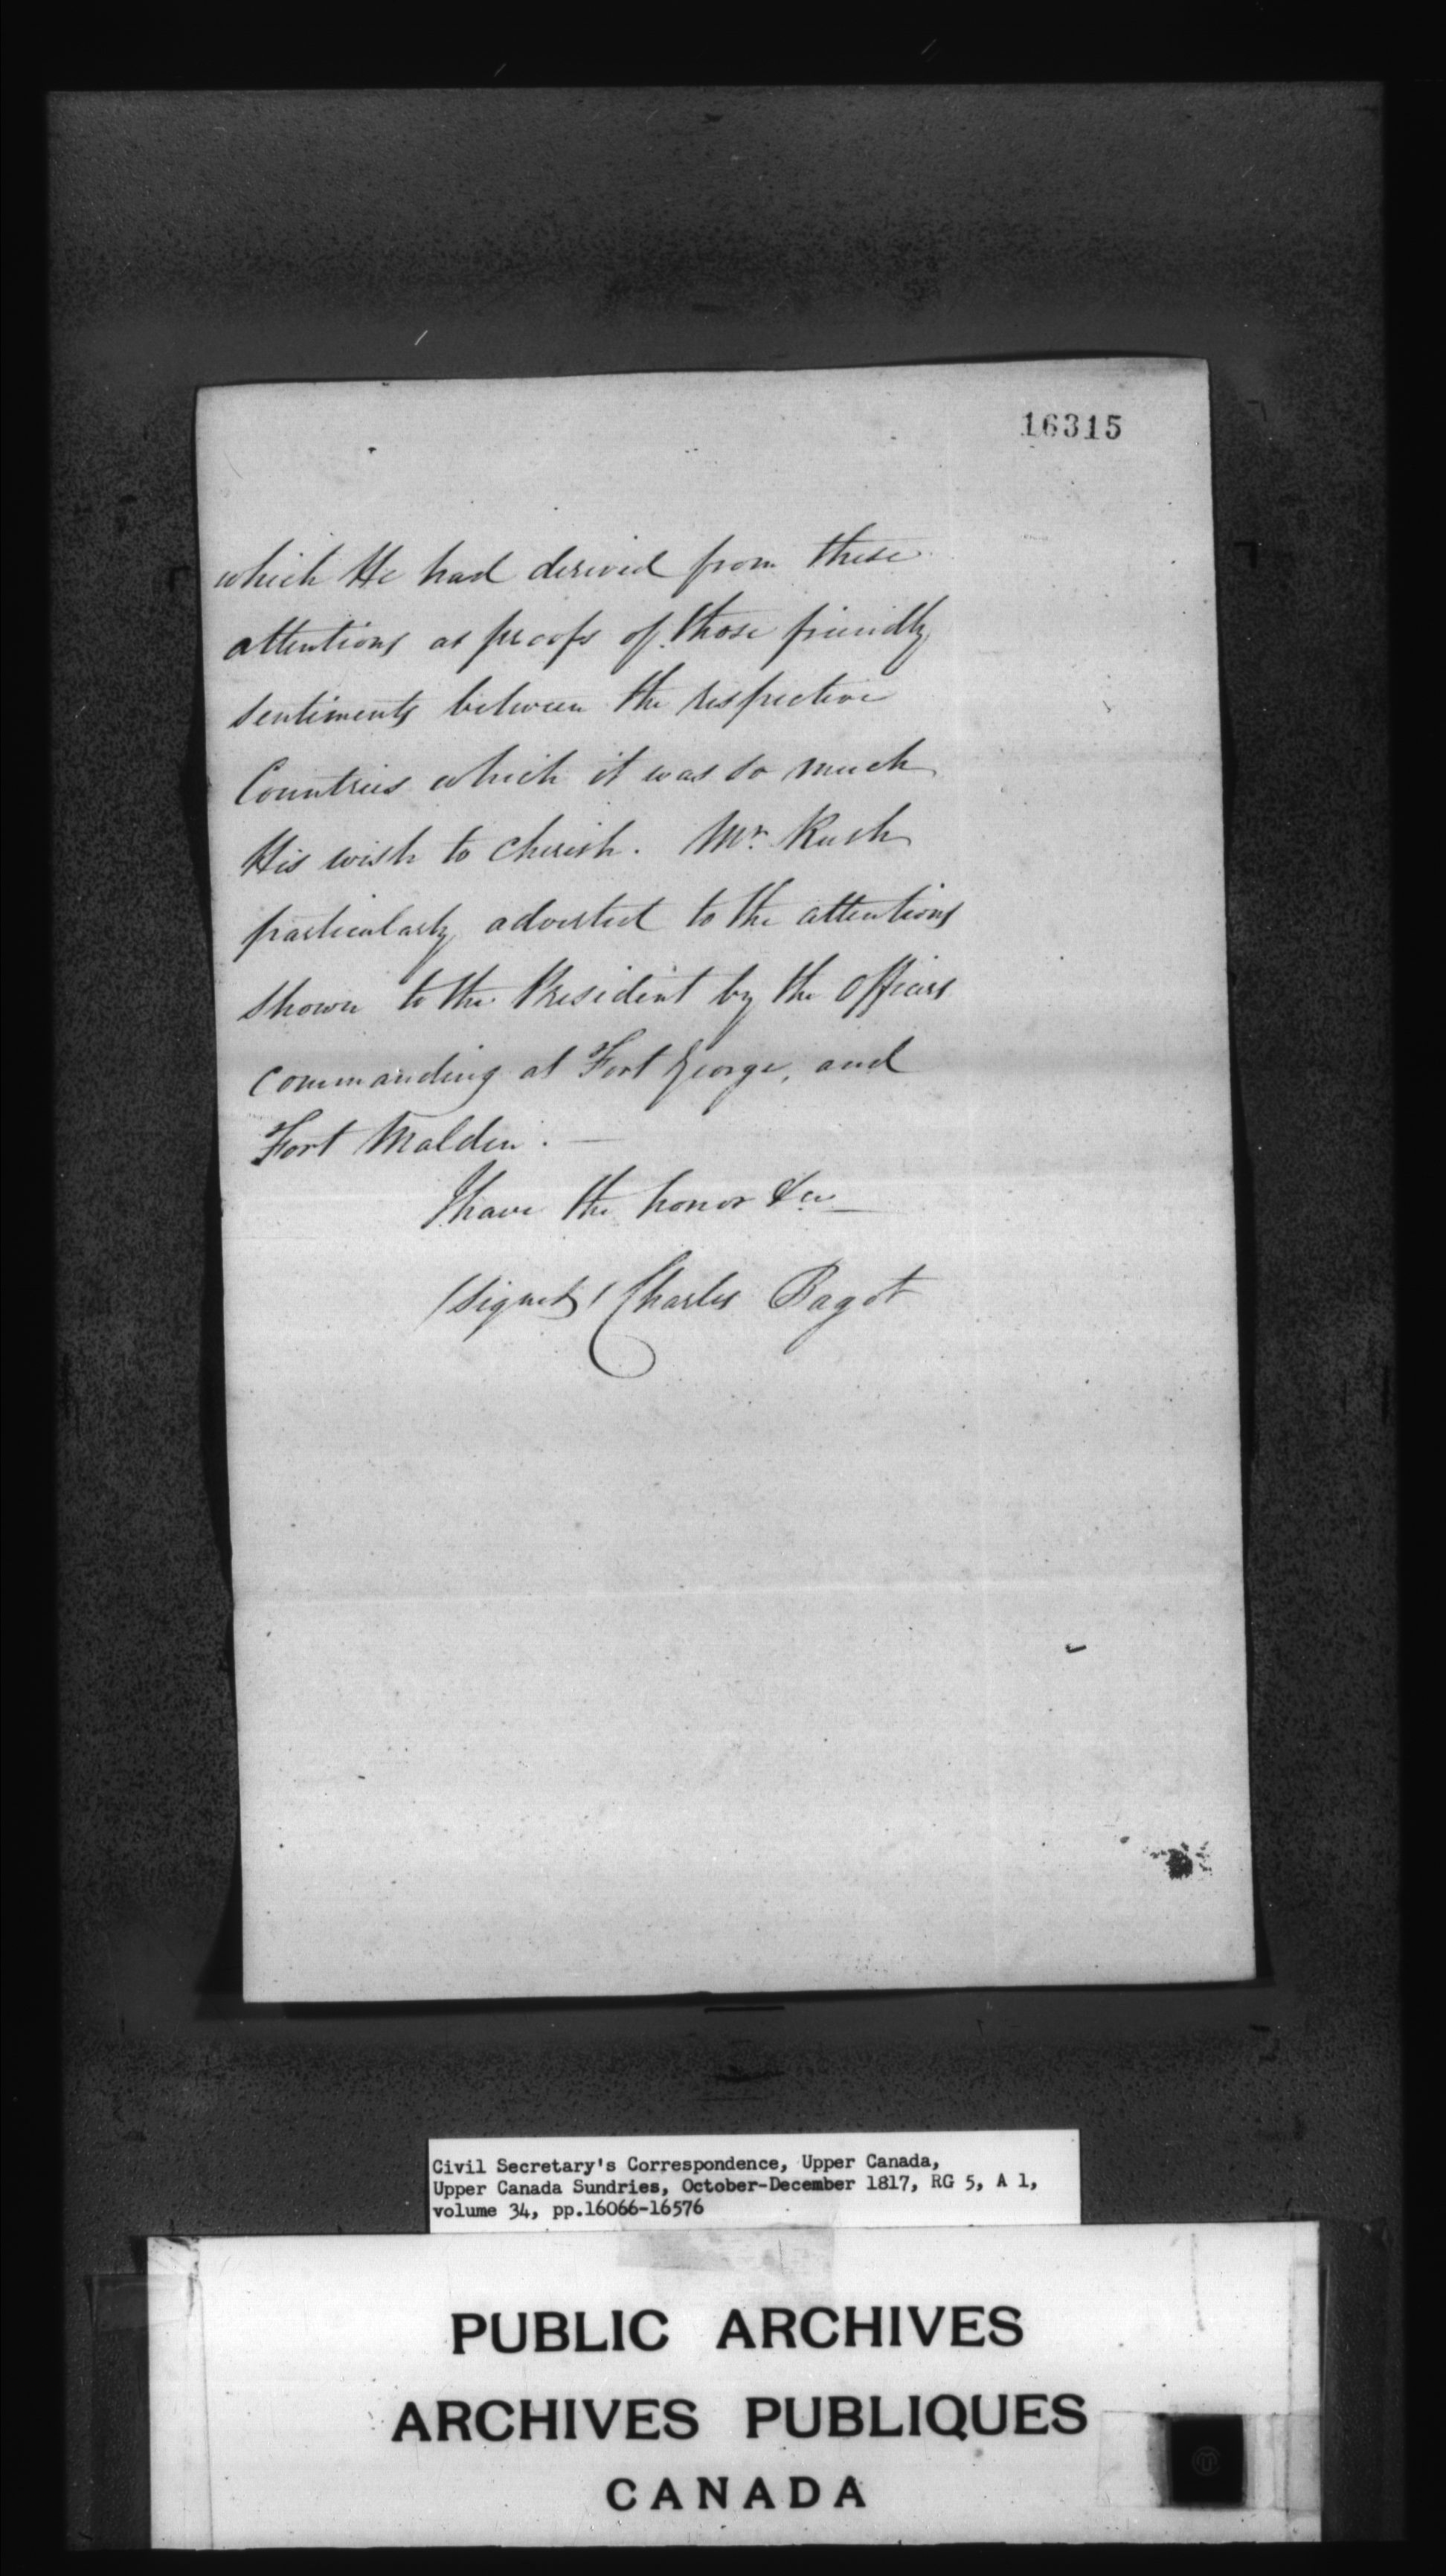 16315
which He had derived from these
attentions as proofs of those friendly
sentiments between the respective
Countries which it was so much
His wish to cherish. Mr. Rush
particularly adverted to the attentions
shown to the President by the Officers
commanding at Fort George, and
Fort Malden. —
I have the honor &c
(signed) Charles Bagot
Civil Secretary's Correspondence, Upper Canada,
Upper Canada Sundries, October-December 1817, RG 5, A 1,
volume 34, pp.16066-16576
PUBLIC ARCHIVES
ARCHIVES PUBLIQUES
CANADA